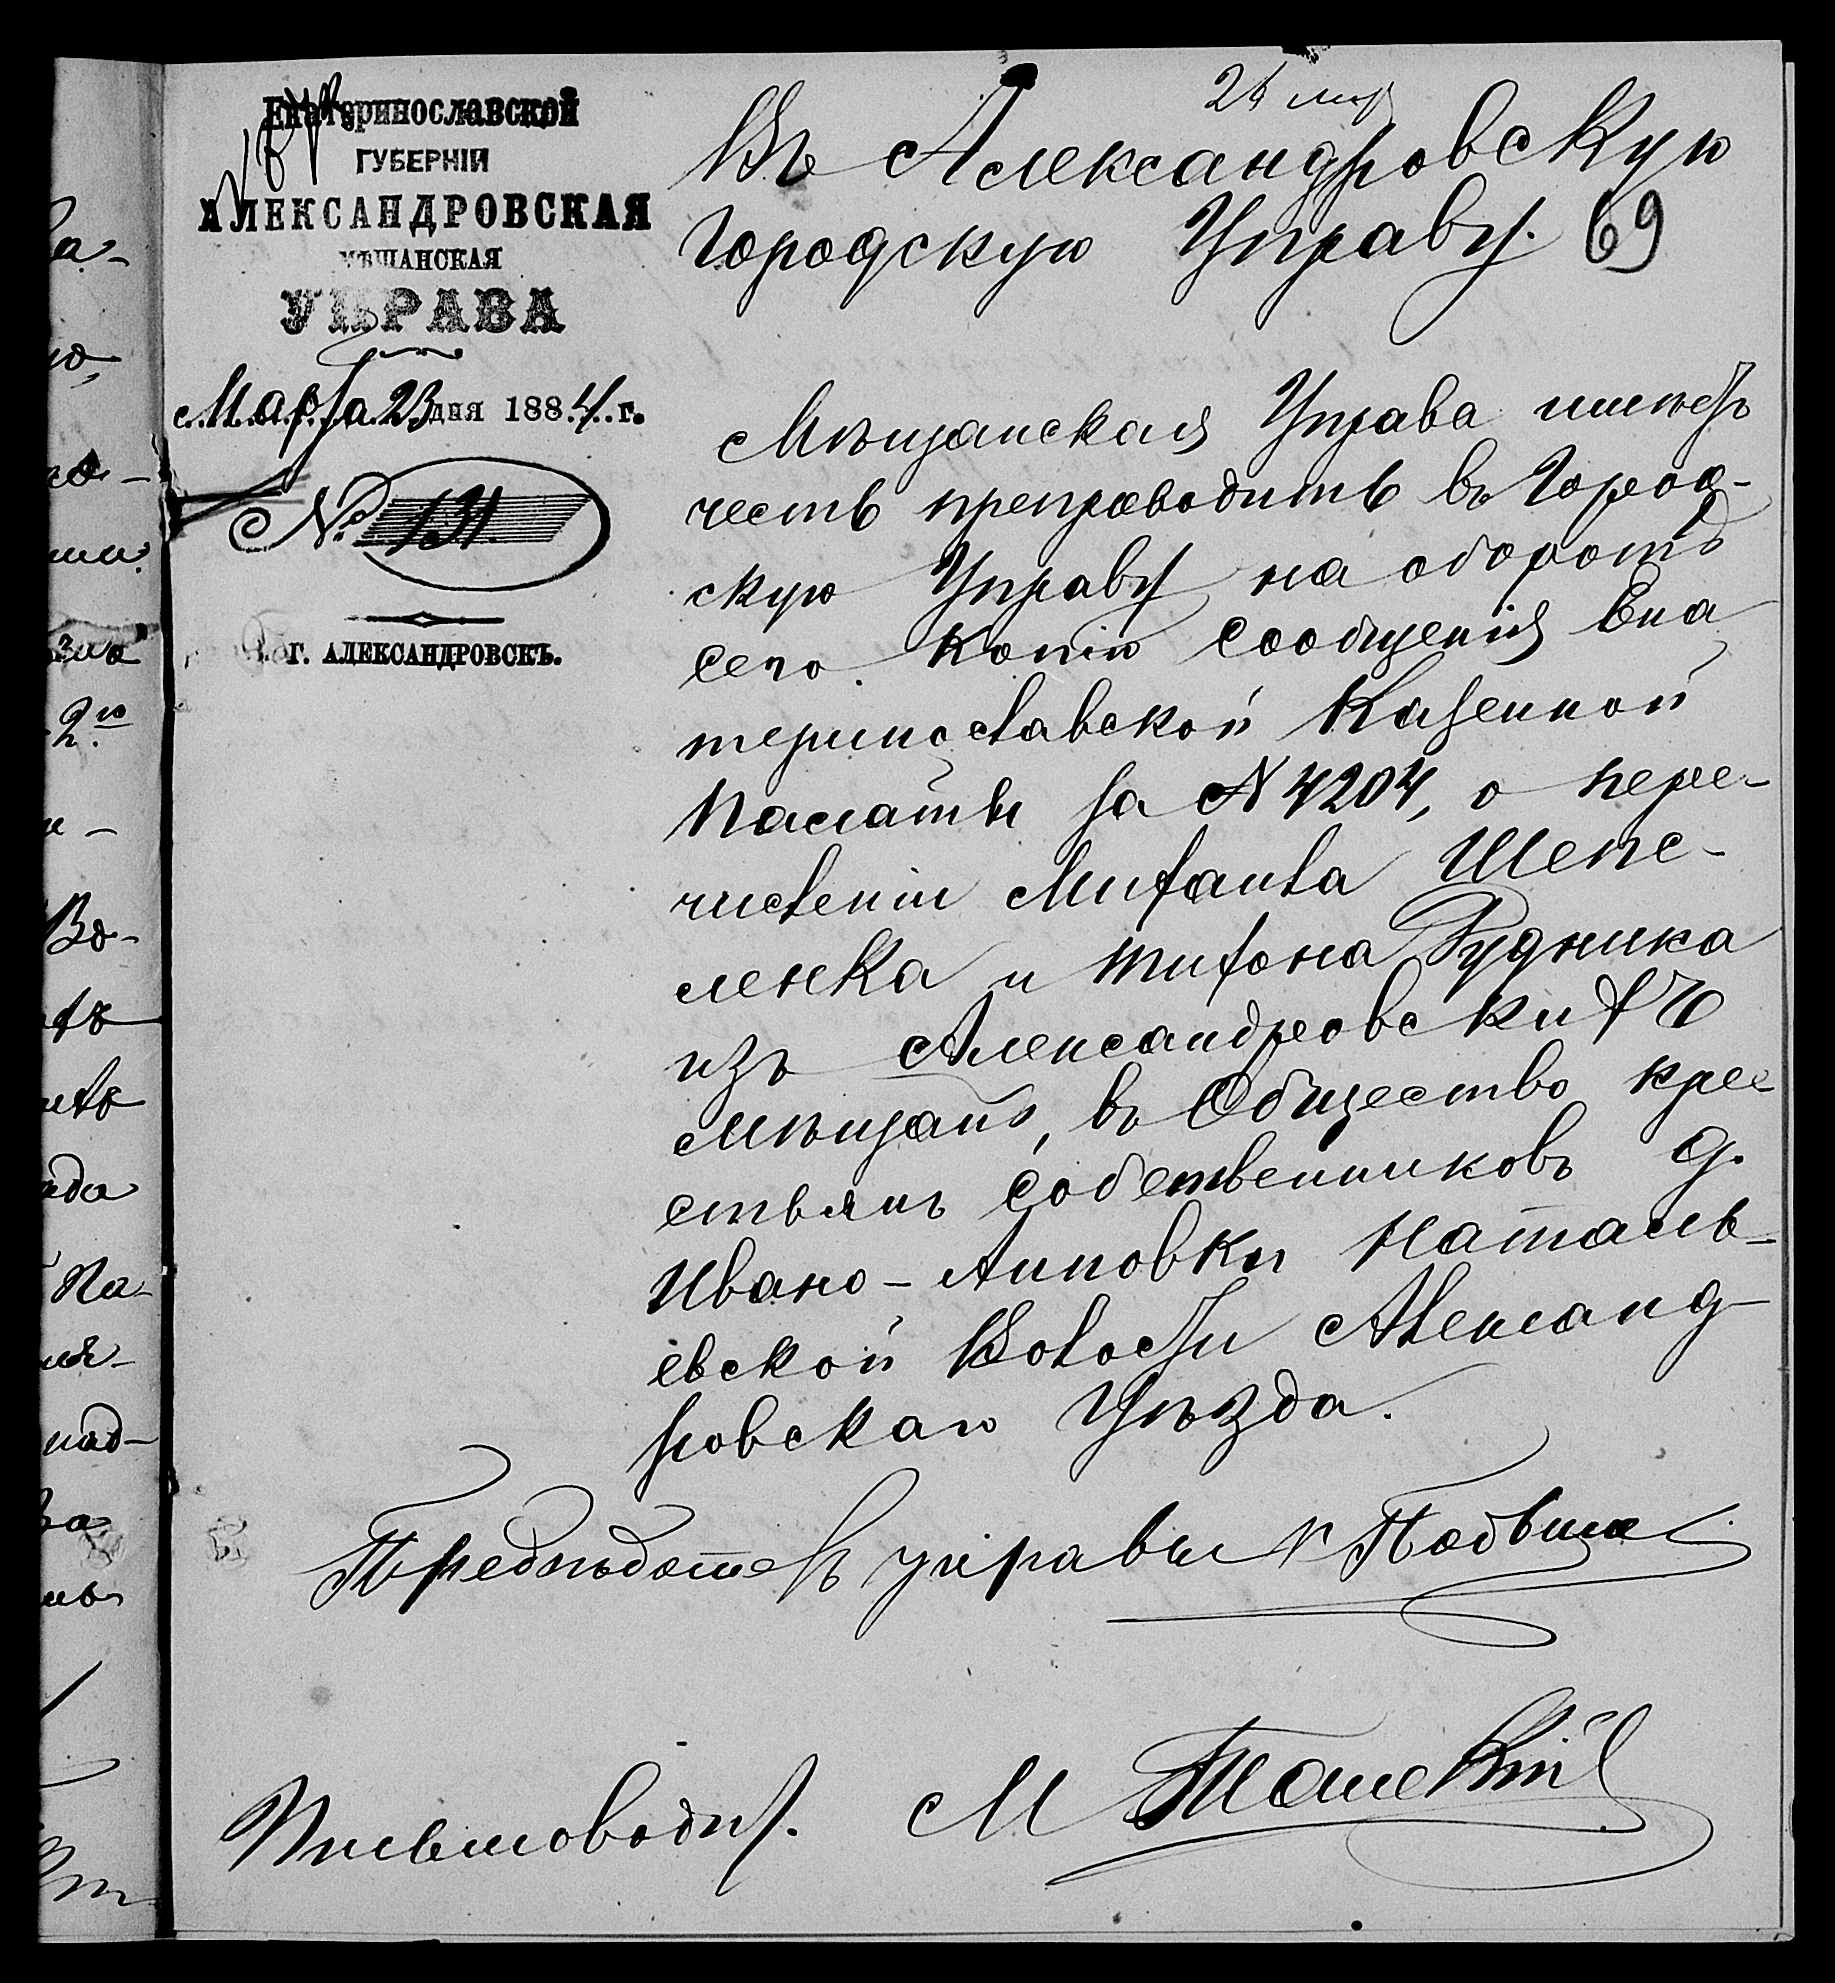 Екатеринославской
ГУБЕРНІИ
АЛЕКСАНДРОВСКАЯ
МѢЩАНСКАЯ
УПРАВА
Марта 23 дня 1884 г.
№ 131
г. АЛЕКСАНДРОВСКЪ.
Въ Александровскую
Городскую Управу.
69
Мѣщанская Управа имѣетъ
честь препроводить въ Город-
скую Управу на оборотѣ
сего копію сообщенія Ека
теринославской Казенной
Палаты за № 4204, о пере-
численіи Михаила Шепе-
ленка и Тихона Рудника
изъ Александровскихъ
мѣщанъ, въ Общество кре-
стьянъ Собственниковъ д.
Ивано-Анновки Наталь-
евской Волости Александ-
ровскаго Уѣзда.
управы
Письмовод.
М